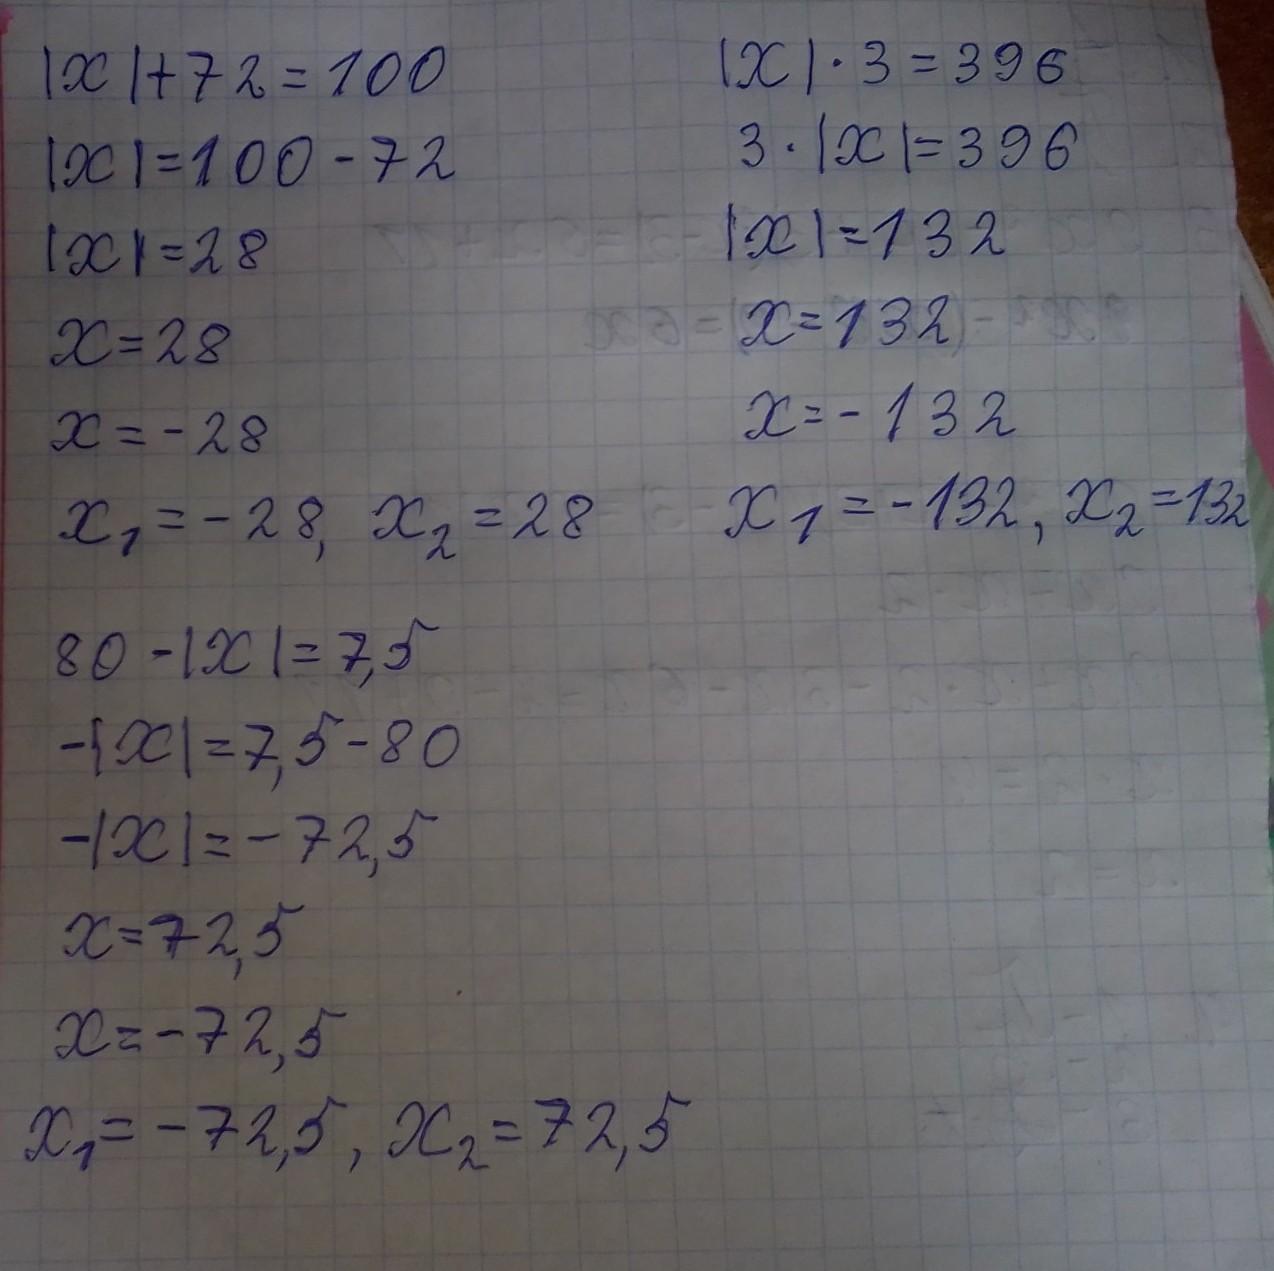 |x|+72=100
|x|=100-72
|x|=28
x=28
x=-28
x₁=-28, x₂=28
|x|·3=396
3·|x|=396
|x|=132
x=132
x=-132
x₁=-132, x₂=132
80-|x|=7,5
-|x|=7,5-80
-|x|=-72,5
x=72,5
x=-72,5
x₁=-72,5, x₂=72,5